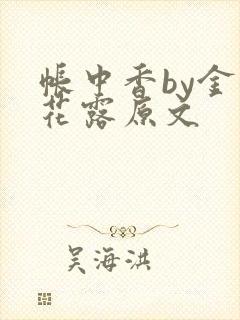 帐中香by金
花露原文
吴海洪